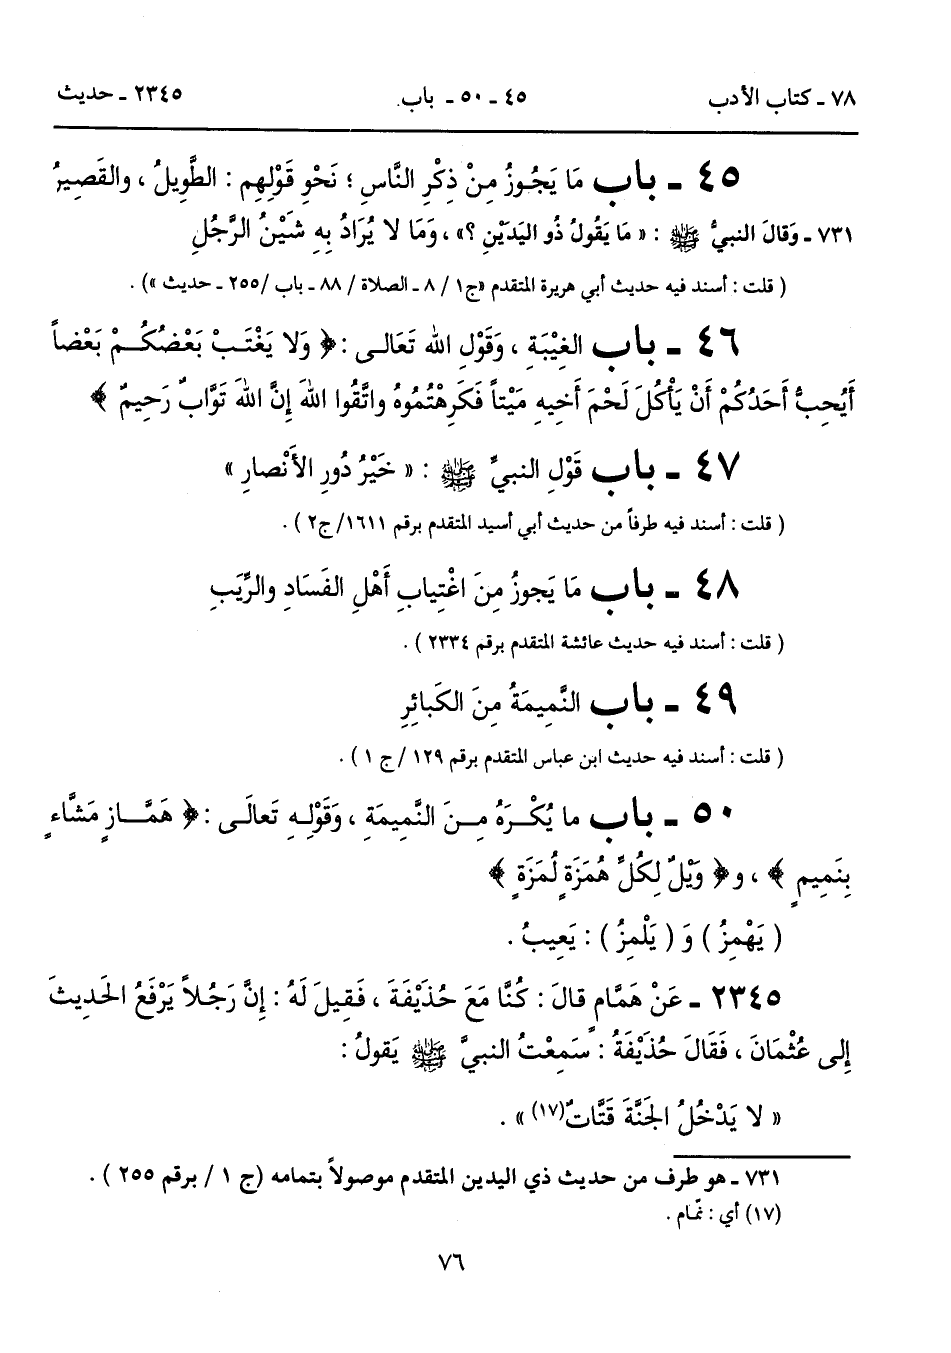 ٧٨ ـ كتاب الأدب ٤٥ ـ ٥٠ ـ باب. ٢٣٤٥ ـ حديث
٤٥ ـ باب مَا يَجُوزُ مِنْ ذِكْرِ النَّاسِ ؛ نَحْوِ قَوْلِهِم : الطَّوِيلُ ، والقَصِيرُ
٧٣١ ـ وَقَالَ النبيُّ ﷺ : « مَا يَقُولُ ذُو اليَدَيْنِ ؟» ، وَمَا لا يُرَادُ بِهِ شَيْنُ الرَّجُلِ
( قلت : أسند فيه حديث أبي هريرة المتقدم «ج١ / ٨ ـ الصلاة / ٨٨ ـ باب /٢٥٥ ـ حديث ») .
٤٦ ـ باب الغِيْبَةِ ، وَقَوْلِ اللهِ تَعَالى : ﴿ وَلا يَغْتَبْ بَعْضُكُمْ بَعْضاً
أَيُحِبُّ أَحَدُكُمْ أَنْ يَأْكُلَ لَحْمَ أَخِيهِ مَيْتاً فَكَرِهْتُمُوهُ واتَّقُوا اللهَ إنَّ اللهَ تَوَّابٌ رَحِيمٌ ﴾
٤٧ ـ باب قَوْلِ النبيِّ ﷺ : « خَيْرُ دُورِ الأَنْصارِ »
( قلت : أسند فيه طرفاً من حديث أبي أسيد المتقدم برقم ١٦١١/ ج٢ ) .
٤٨ ـ باب مَا يَجوزُ مِنَ اغْتِيابِ أَهْلِ الفَسَادِ والرِّيَبِ
( قلت : أسند فيه حديث عائشة المتقدم برقم ٢٣٣٤ ) .
٤٩ ـ باب النَّمِيمَةُ مِنَ الكَبائِرِ
( قلت : أسند فيه حديث ابن عباس المتقدم برقم ١٢٩ / ج ١ ) .
٥٠ ـ باب ما يُكْرَهُ مِنَ النَّمِيمَةِ ، وَقَوْلِهِ تَعالَى : ﴿ هَمَّازٍ مَشَّاءٍ
بِنَمِيمٍ ﴾ ، و ﴿ وَيْلٌ لِكُلِّ هُمَزَةٍ لُمَزَةٍ ﴾
( يَهْمِزُ ) وَ ( يَلْمِزُ ) : يَعِيبُ .
٢٣٤٥ ـ عَنْ هَمَّامٍ قالَ : كُنَّا مَعَ حُذَيْفَةَ ، فَقِيلَ لَهُ : إنَّ رَجُلاً يَرْفَعُ الحَديثَ
إلى عُثْمَانَ ، فَقَالَ حُذَيْفَةُ : سَمِعْتُ النبيَّ ﷺ يَقولُ :
« لا يَدْخُلُ الجَنَّةَ قَتَّاتٌ(١٧) » .
٧٣١ ـ هو طرف من حديث ذي اليدين المتقدم موصولاً بتمامه (ج ١ / برقم ٢٥٥ ) .
(١٧) أي : نمّام .
٧٦